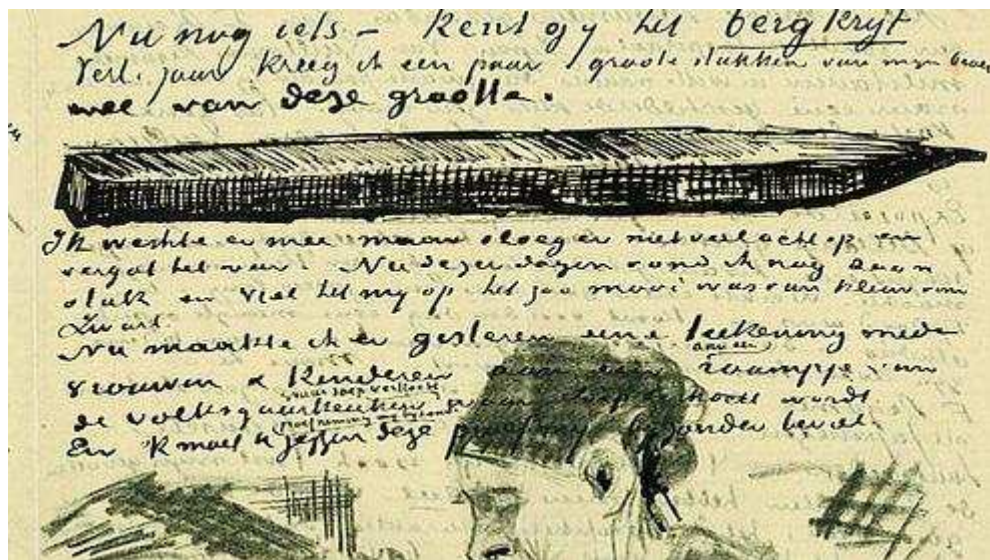 Nu nog iets – Kent gy het bergkryt
Verl. jaar kreeg ik een paar groote stukken van myn broer
mee van deze grootte.
Ik werkte er mee maar sloeg er niet veel acht op en
vergat het weer. Nu dezer dagen vond ik nog een
stuk en viel het my op het zoo mooi was van kleur van
Zwart.
Nu maakte ik er gisteren eene teekening mede
vrouwen & Kinderen aan een raampje van
de volksgaarkeuken waar soep verkocht wordt
En ik moet U zeggen deze proefneming byzonder beviel.